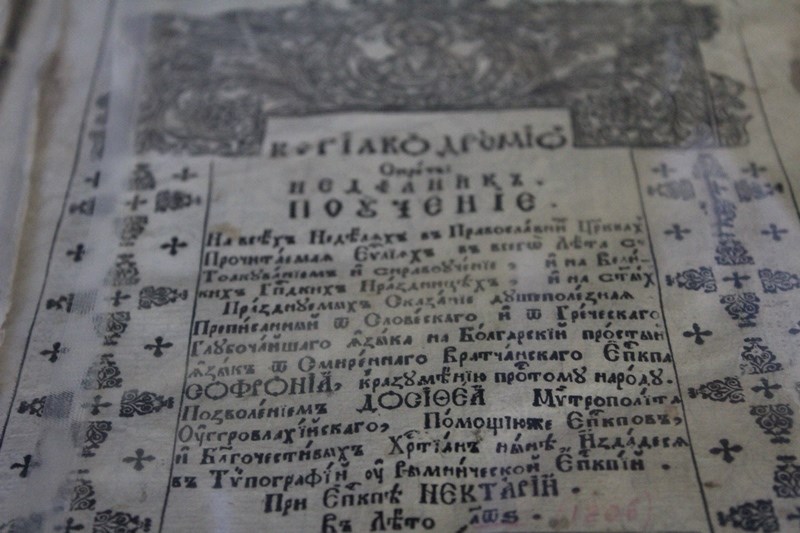 КѴРІАКОДРОМІОН
Сирѣчь
НЕДЕЛНИКЪ.
ПОУЧЕНІЕ.
На всѣхъ Неделѧхъ въ Православнїй Церквахъ
Прочитаемаѧ Еѵⷢ҇лїахъ въ всегѡ Лѣта съ
Толкованїемъ и нравоученїе, и на Вели-
кихъ Гⷭ҇дскихъ Праздницѣхъ, и на ст҃ыхъ
Празднуемыхъ Сказанїе душеполезнаѧ
Преписанный ѿ Словенскаго и ѿ Греческаго
Глубочайшаго Ꙗзыка на Болгарскїй простый
ꙗзыкъ ѿ Смиреннаго Вратчанскаго Еп҃кпа
СОФРОНІА, кразумѣнїю простому народу.
Позволенїемъ ДОСІѲЕА Мѵтрополїта
Оуггровлахїйскаго, Помощїюже Еп҃кповъ,
и Бл҃гочестивыхъ Хрⷭ҇тїанъ нынѣ Издадесѧ
въ Тѵпографїй оу Рымнической Еп҃кпїи.
При Еп҃кпѣ НЕКТАРІЙ.
Въ Лѣто аѡѕ. (1806)